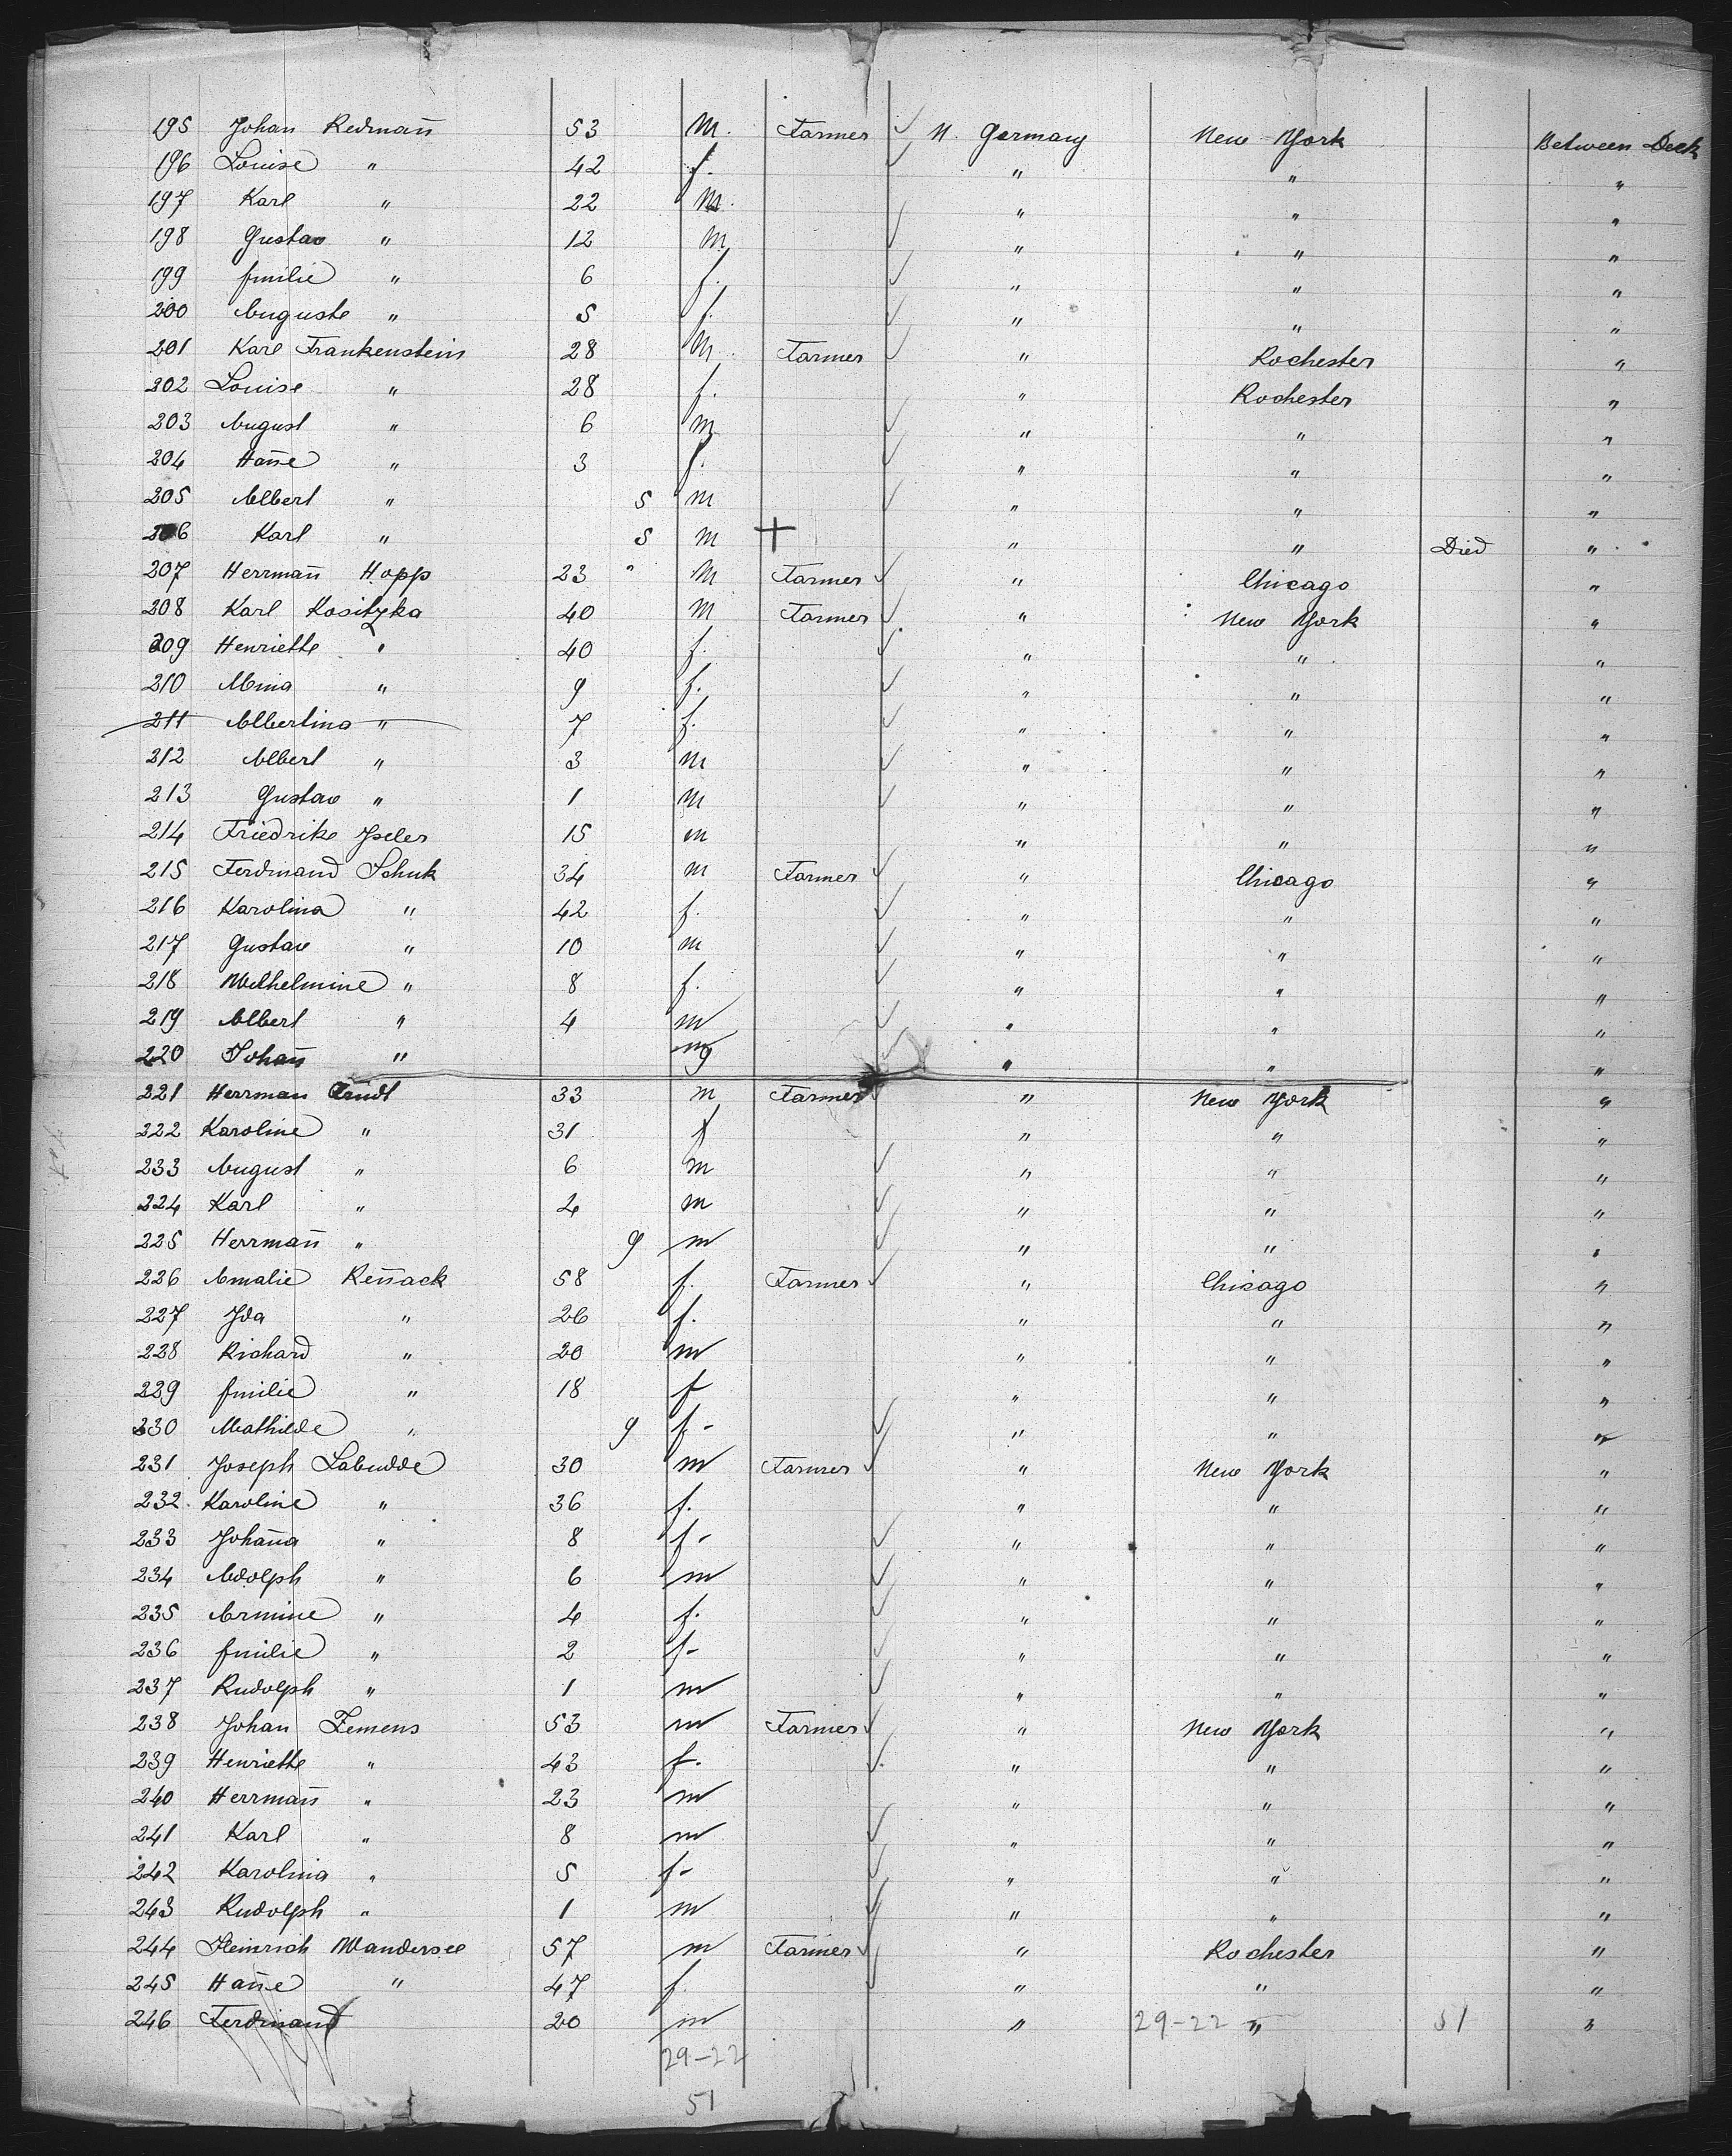 195 Johan Redmañ 53 M. Farmer ✓ N. Germany New York Between Deck
196 Louise " 42 f. ✓ " " "
197 Karl " 22 M. " " "
198 Gustav " 12 M ✓ " " "
199 Emilie " 6 f. ✓ " " "
200 Auguste " 5 f. ✓ " " "
201 Karl Frankenstein 28 M. Farmer ✓ " Rochester "
202 Louise " 28 f. " Rochester "
203 August " 6 m ✓ " " "
204 Hañe " 3 f. ✓ " " "
205 Albert " 5 m ✓ " " "
206 Karl " 5 m + " " Died "
207 Herrmañ Hopp 23 " M Farmer ✓ " Chicago "
208 Karl Kositzka 40 M Farmer ✓ " New York "
209 Henriette " 40 f. ✓ " " "
210 Mina " 9 f. ✓ " " "
211 Albertina " 7 f. ✓ " " "
212 Albert " 3 m ✓ " " "
213 Gustav " 1 m ✓ " " "
214 Friedrike Jseler 15 m " " "
215 Ferdinand Schuk 34 m Farmer ✓ " Chicago "
216 Karolina " 42 f. ✓ " " "
217 Gustav " 10 m ✓ " " "
218 Wilhelmine " 8 f. ✓ " " "
219 Albert " 4 m ✓ " " "
220 Johañ " 9 m ✓ " " "
221 Herrman Arndt 33 m Farmer ✓ " New York "
222 Karoline " 31 f " " "
233 August " 6 m ✓ " " "
224 Karl " 2 m ✓ " " "
225 Herrmañ " 9 m ✓ " " "
226 Amalie Reñack 58 f. Farmer ✓ " Chicago "
227 Jda " 26 f. " " "
228 Richard " 20 m " " "
229 Emilie " 18 f " " "
230 Mathilde " 9 f - ✓ " " "
231 Joseph Labudde 30 m Farmer ✓ " New York "
232. Karoline " 36 f. " " "
233 Johaña " 8 f - ✓ " " "
234 Adolph " 6 m ✓ " " "
235 Armine " 4 f. ✓ " " "
236 Emilie " 2 f - ✓ " " "
237 Rudolph " 1 m ✓ " " "
238 Johan Zemens 53 m Farmer ✓ " New York "
239 Henriette " 43 f. ✓ " " "
240 Herrmañ " 23 m " " "
241 Karl " 8 m ✓ " " "
242 Karolina " 5 f - ✓ " " "
243 Rudolph " 1 m ✓ " " "
244 Heinrich Wandersee 57 m Farmer ✓ " Rochester "
245 Hañe " 47 f. ✓ " " "
246 Ferdinand 20 m " 29-22 " 51 "
29-22
51